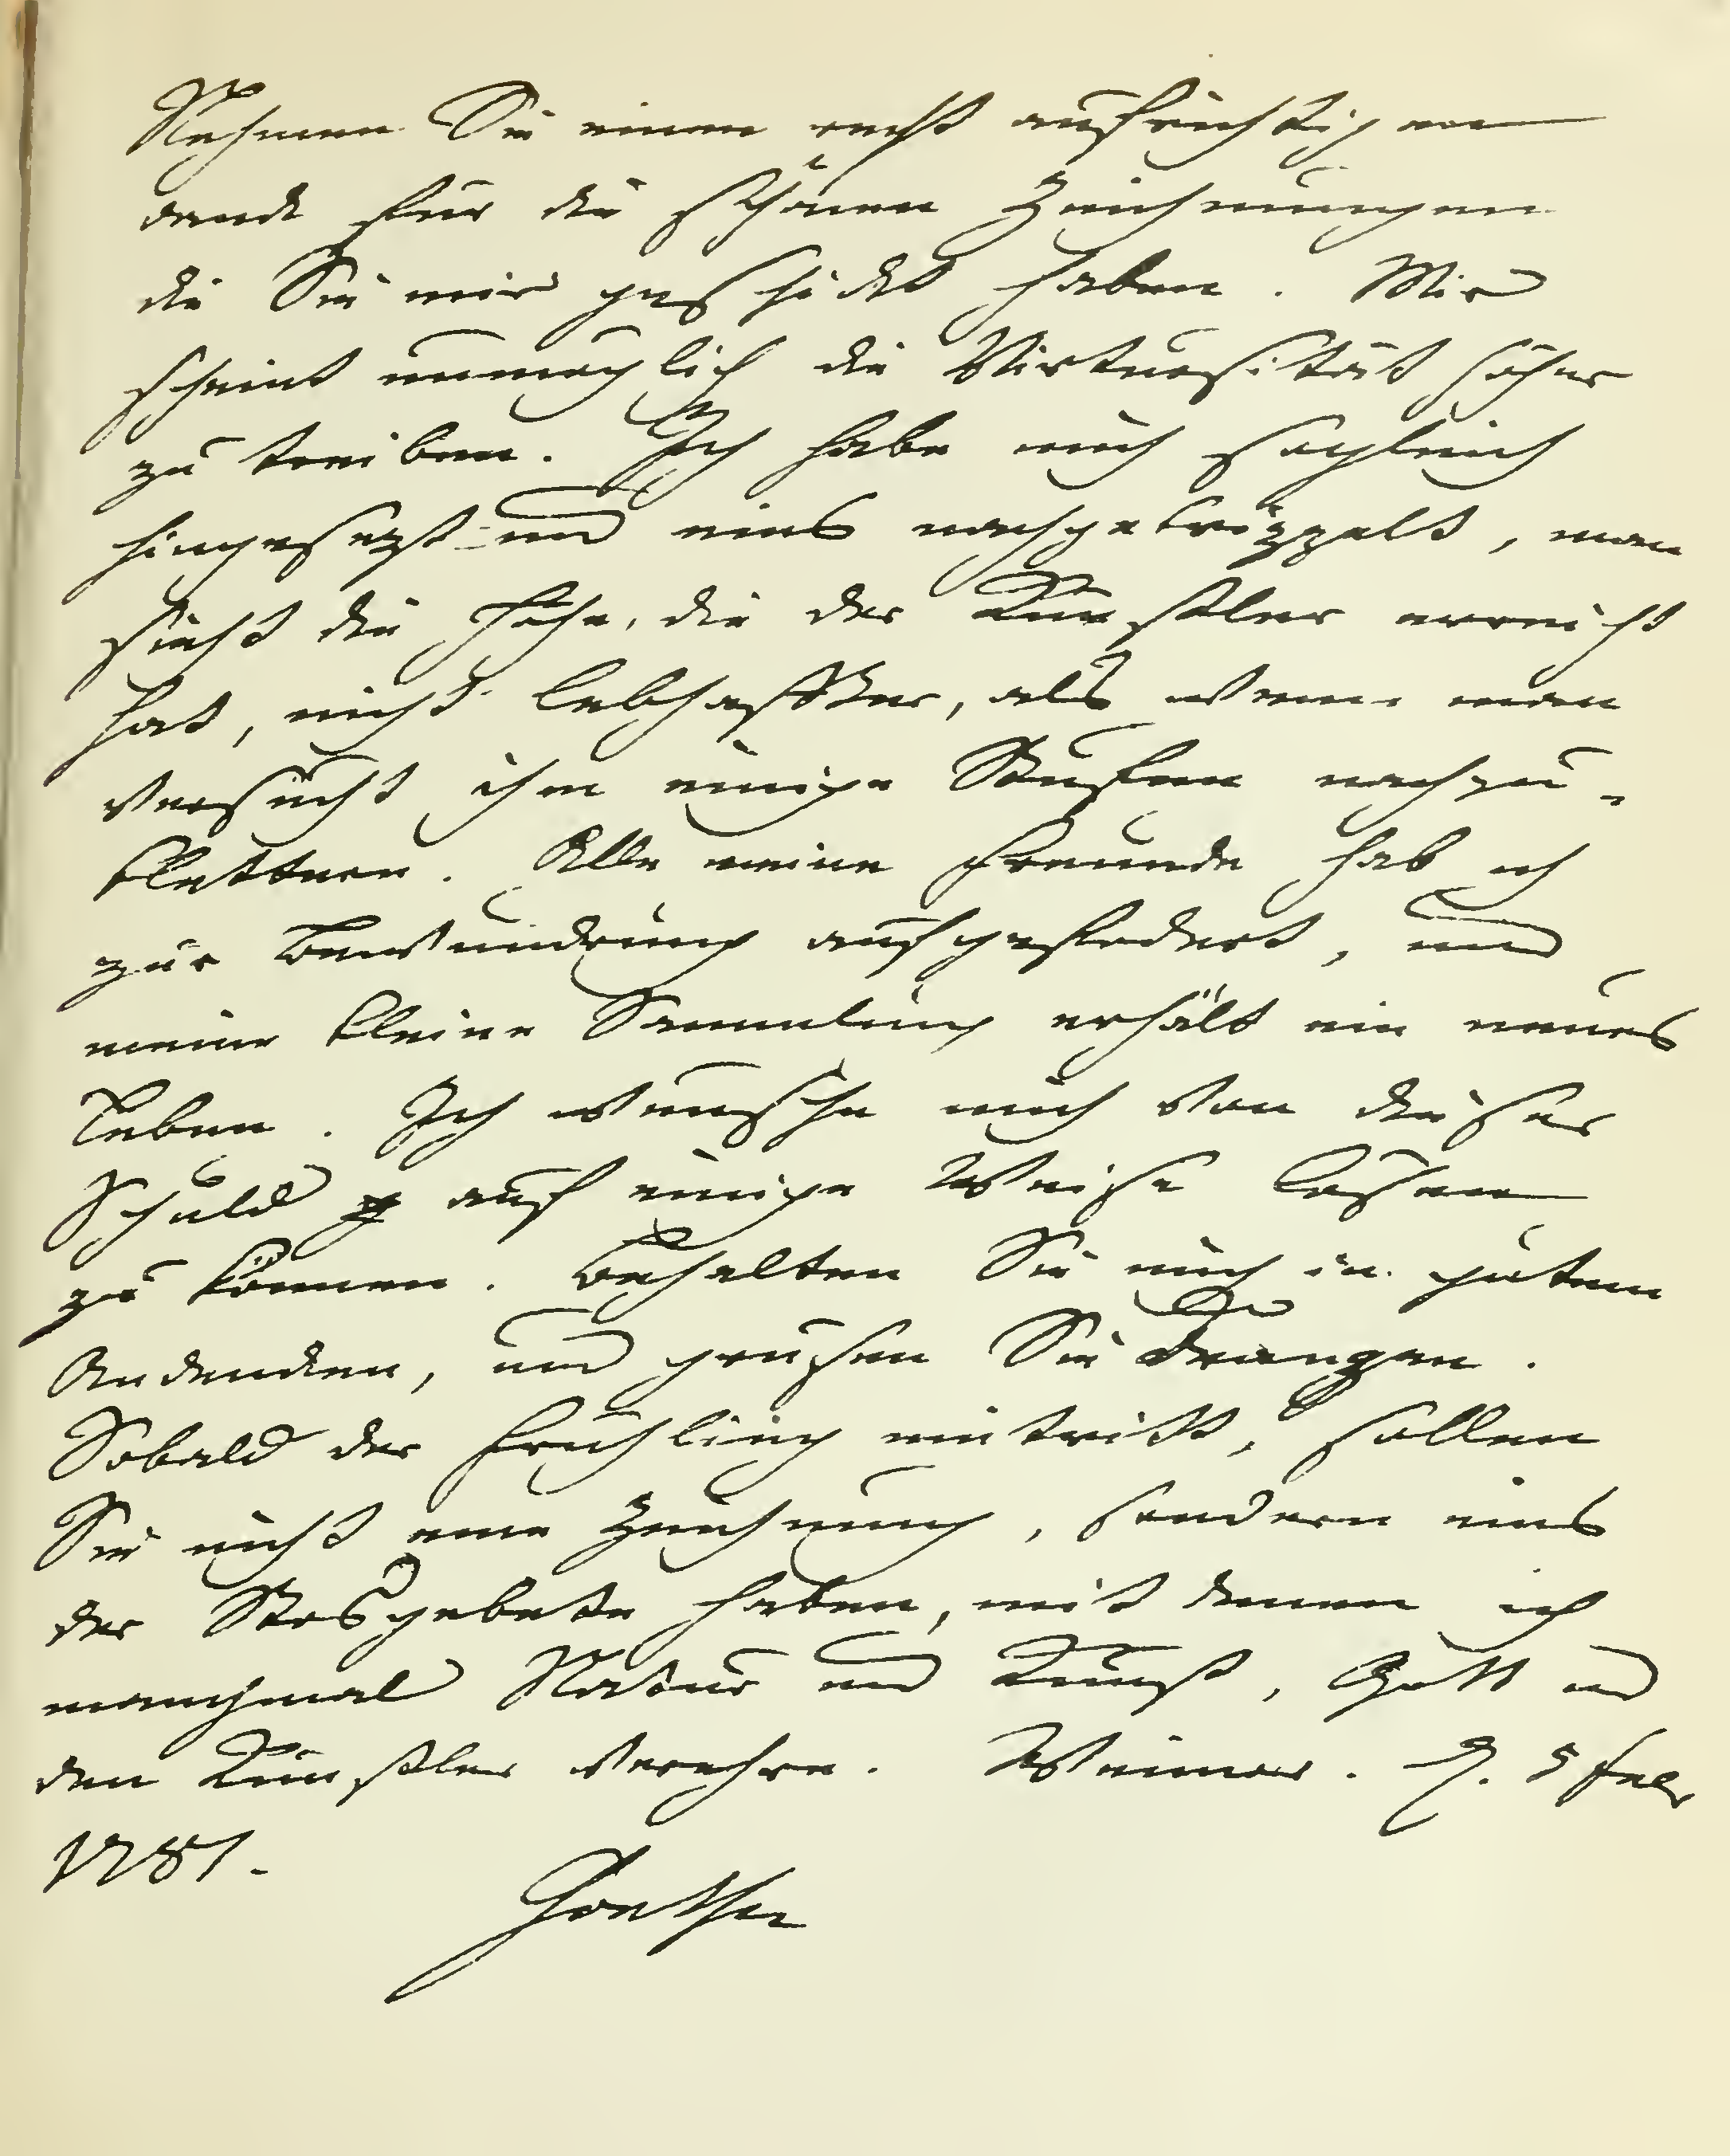 Nehmen Sie einen recht aufrichtigen
danck für die schönen Zeichnungen
die Sie mir geschickt haben. Mir
scheint unmöglich die Virtuosität höher
zu treiben. Ich habe mich sogleich
hingesezt und eins nachgekrizzelt, man
sieht die Höhe, die der Künstler erreicht
hat, nicht lebhaffter, als wenn man
versucht ihm einige Stufen nachzu-
klettern. Alle meine Freunde hab ich
zur Bewundrung aufgefodert, und
meine kleine Sammlung erhält ein neues
Leben. Ich wünsche mich von dieser
Schuld auf einige Weise lösen
zu können. Behalten Sie mich in gutem
Andencken, und grüsen Sie
Sobald der Frühling eintritt, sollen
Sie nicht eine Zeichnung, sondern eins
der Stosgebete haben, mit denen ich
manchmal Natur und Kunst, Gott und
den Künstler verehre. Weimar. d. 5 Febr
1781.
Goethe